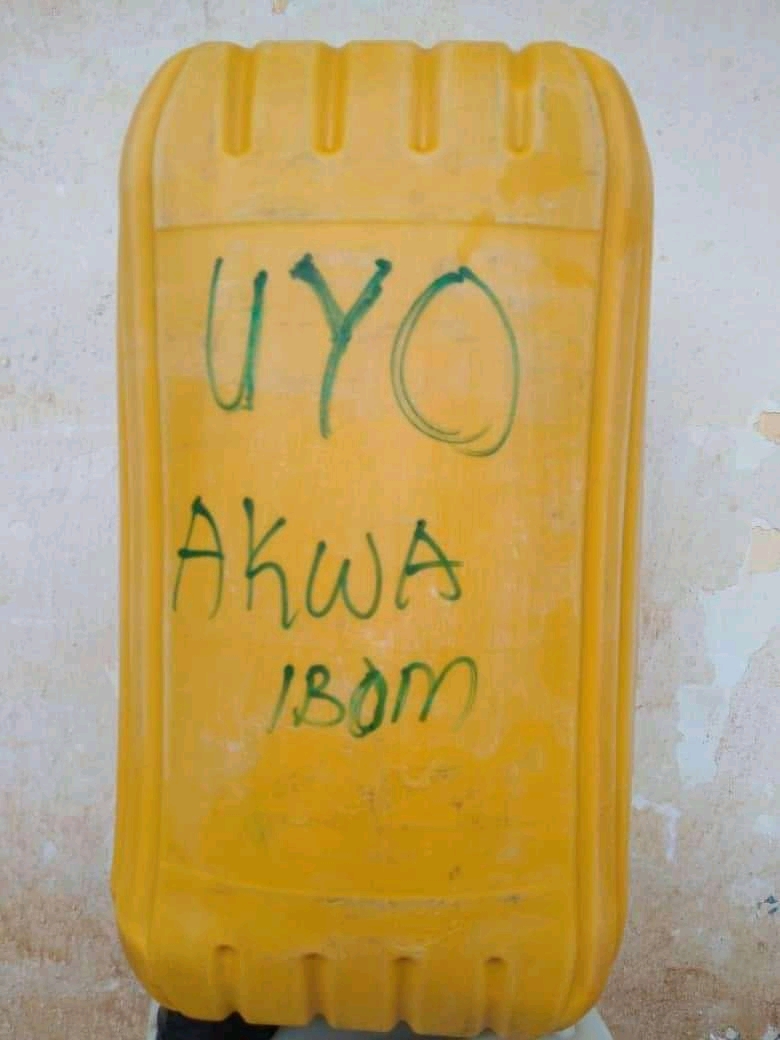 UYO
AKWA
IBOM